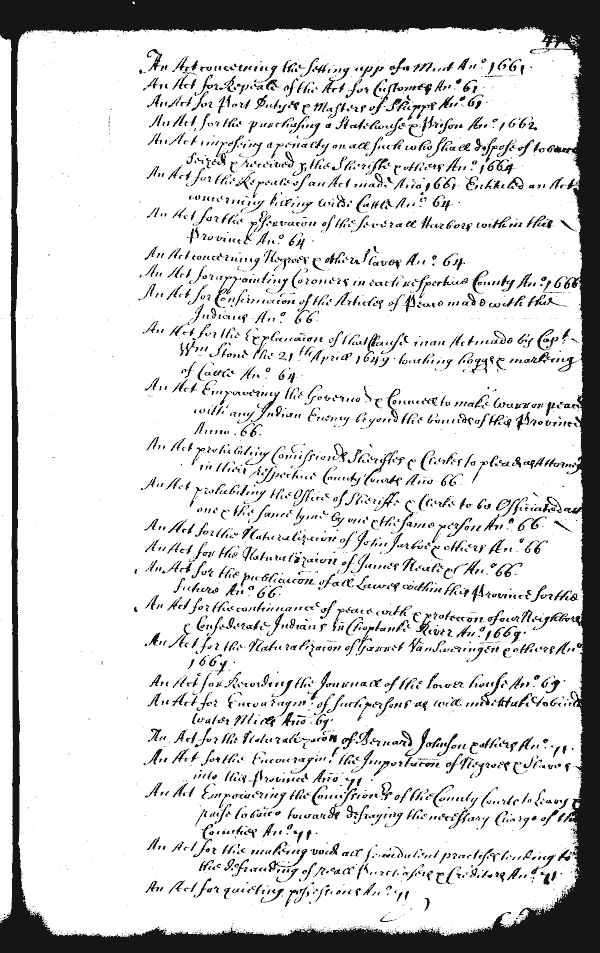 An Act concerning the setting upp of a Mint An.º 1661
An Act for Repeale of the Act for Customes An.º 61
An Act for Port Dutyes & Masters of Shipps An.º 61
An Act for the purchasing a Statehouse & Prison An.º 1662
An Act imposing a penalty on all such who shall dispose of tobaccoe
Seized & received p the Sheriffe & others An.º 1664
An Act for the Repeale of an Act made Año 1661 Entituled an Act
concerning killing wilde Cattle An.º 64
An Act for the pservacõn of the severall Harbors within this
Province An.º 64
An Act concerning Negroes & other Slaves An.º 64
An Act for appointing Coroners in each respective County An.º 1666
An Act for Confirmacõn of the Articles of Peace made with the
Indians An.º 66
An Act for the Explanacõn of that Clause in an Act made by Cap.t
Wm Stone the 21th Aprill 1649 touching hoggs & marking
of Cattle An.º 64
An Act Empowering the Governor & Councell to make warr or peace
with any Indian Enemy beyond the bounds of this Province
Anno 66
An Act prohibiting Comission.rs Sheriffes & Clerkes to plead as Attorneys
in their respective County Courts Año 66
An Act prohibiting the Office of Sheriffe & Clerke to be Officiated att
one & the same tyme by one & the same person An.º 66
An Act for the Naturalizacõn of John Jarboe & others An.º 66
An Act for the Naturalizacõn of James Neale &c An.º 66
An Act for the publicacõn of all Lawes within this Province for the
future An.º 66
An Act for the continuance of peace with & proteccõn of our Neighbors
& Confederate Indians in Choptanke River An.º 1669
An Act for the Naturalizacõn of Garret VanSweringen & others An.º
1669
An Act for Recording the Journall of the lower house An.º 69
An Act for Encouragm.t of such persons as will undertake to build
Water Mills Año 69
An Act for the Naturalizacõn of Bernard Johnson & others An.º 71
An Act for the Encouragin.g the Importacõn of Negroes & Slaves
into this Province Año 71
An Act Empowering the Comission.rs of the County Courts to Leavy &
raise tobacco towards defraying the necessary Charge of the
Counties An.º 71
An Act for the making void all fraudulent practises tending to
the defrauding of reall Purchasers & Creditors An.º 71
An Act for quieting possessions An.º 71